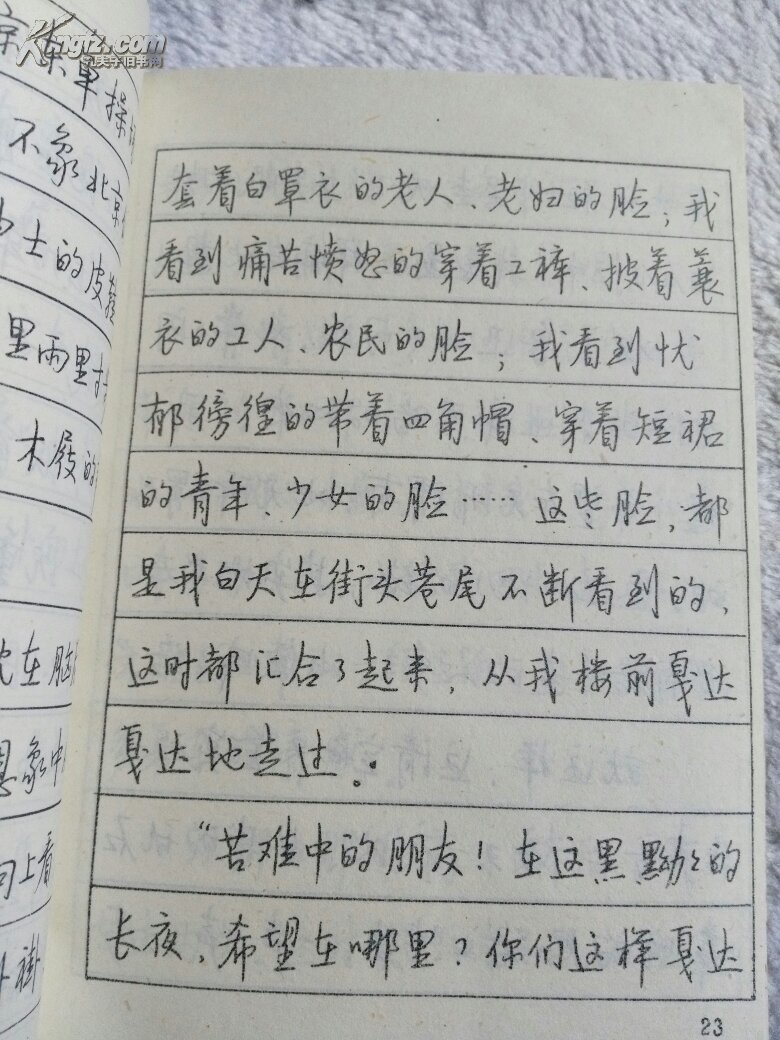 Kngfz.com
孔夫子旧书网
京菜单操
不象北京
士的皮鞋
里雨里
木屐的
在脑
象中
向上看
褂
套着白罩衣的老人、老妇的脸；我
看到痛苦愤怒的穿着工裤、披着蓑
衣的工人、农民的脸；我看到忧
郁徬徨的带着四角帽、穿着短裙
的青年、少女的脸……这些脸，都
是我白天在街头巷尾不断看到的，
这时都汇合了起来，从我楼前戛达
戛达地走过。
“苦难中的朋友！在这黑黝々的
长夜，希望在哪里？你们这样戛达
23